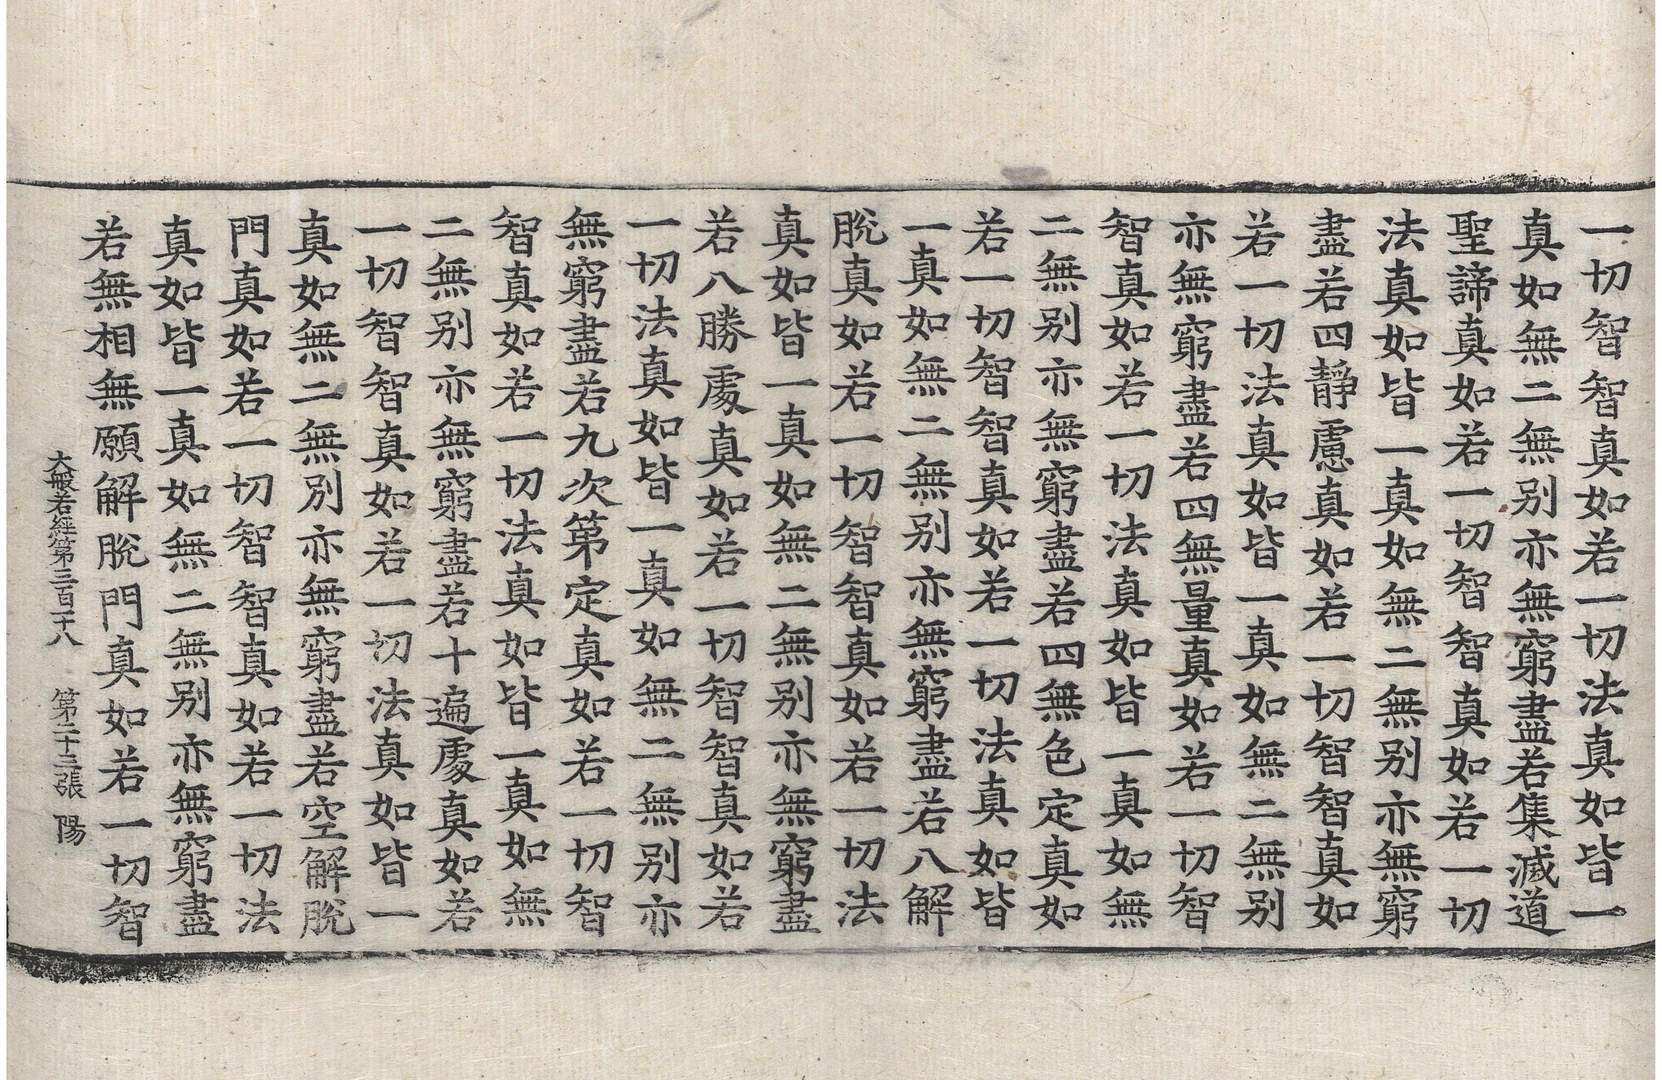 一切智智真如若一切法真如皆一
真如無二無别亦無窮盡若集滅道
聖諦真如若一切智智真如若一切
法真如皆一真如無二無别亦無窮
盡若四靜慮真如若一切智智真如
若一切法真如皆一真如無二無别
亦無窮盡若四無量真如若一切智
智真如若一切法真如皆一真如無
二無别亦無窮盡若四無色定真如
若一切智智真如若一切法真如皆
一真如無二無别亦無窮盡若八解
脫真如若一切智智真如若一切法
真如皆一真如無二無别亦無窮盡
若八勝處真如若一切智智真如若
一切法真如皆一真如無二無别亦
無窮盡若九次第定真如若一切智
智真如若一切法真如皆一真如無
二無别亦無窮盡若十遍處真如若
一切智智真如若一切法真如皆一
真如無二無別亦無窮盡若空解脫
門真如若一切智智真如若一切法
真如皆一真如無二無别亦無窮盡
若無相無願解脫門真如若一切智
大般若經第三百一十八 第二十三張 陽